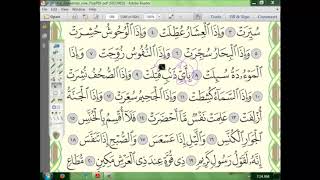 سُيِّرَتْ ۝٣ وَإِذَا الْعِشَارُ عُطِّلَتْ ۝٤ وَإِذَا الْوُحُوشُ حُشِرَتْ
۝٥ وَإِذَا الْبِحَارُ سُجِّرَتْ ۝٦ وَإِذَا النُّفُوسُ زُوِّجَتْ ۝٧ وَإِذَا
الْمَوْءُدَةُ سُئِلَتْ ۝٨ بِأَيِّ ذَنْبٍ قُتِلَتْ ۝٩ وَإِذَا الصُّحُفُ نُشِرَتْ
۝١٠ وَإِذَا السَّمَاءُ كُشِطَتْ ۝١١ وَإِذَا الْجَحِيمُ سُعِّرَتْ ۝١٢ وَإِذَا الْجَنَّةُ
أُزْلِفَتْ ۝١٣ عَلِمَتْ نَفْسٌ مَا أَحْضَرَتْ ۝١٤ فَلَا أُقْسِمُ بِالْخُنَّسِ ۝١٥
الْجَوَارِ الْكُنَّسِ ۝١٦ وَاللَّيْلِ إِذَا عَسْعَسَ ۝١٧ وَالصُّبْحِ إِذَا تَنَفَّسَ ۝١٨
إِنَّهُ لَقَوْلُ رَسُولٍ كَرِيمٍ ۝١٩ ذِي قُوَّةٍ عِنْدَ ذِي الْعَرْشِ مَكِينٍ ۝٢٠ مُطَاعٍ